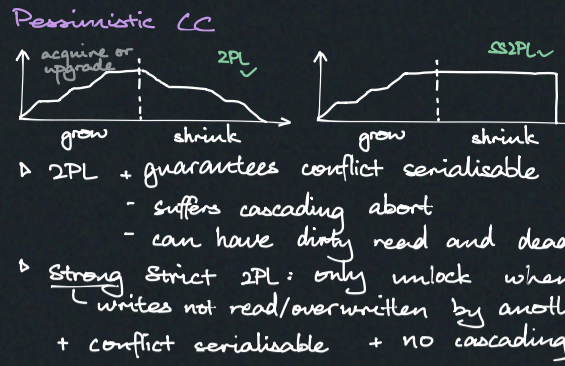 Pessimistic CC
acquire or
upgrade
2PL
SS2PL
grow shrink grow shrink
▷ 2PL + guarantees conflict serialisable
- suffers cascading abort
- can have dirty read and dead
▷ Strong Strict 2PL: only unlock when
writes not read/overwritten by anoth
+ conflict serialisable + no cascading